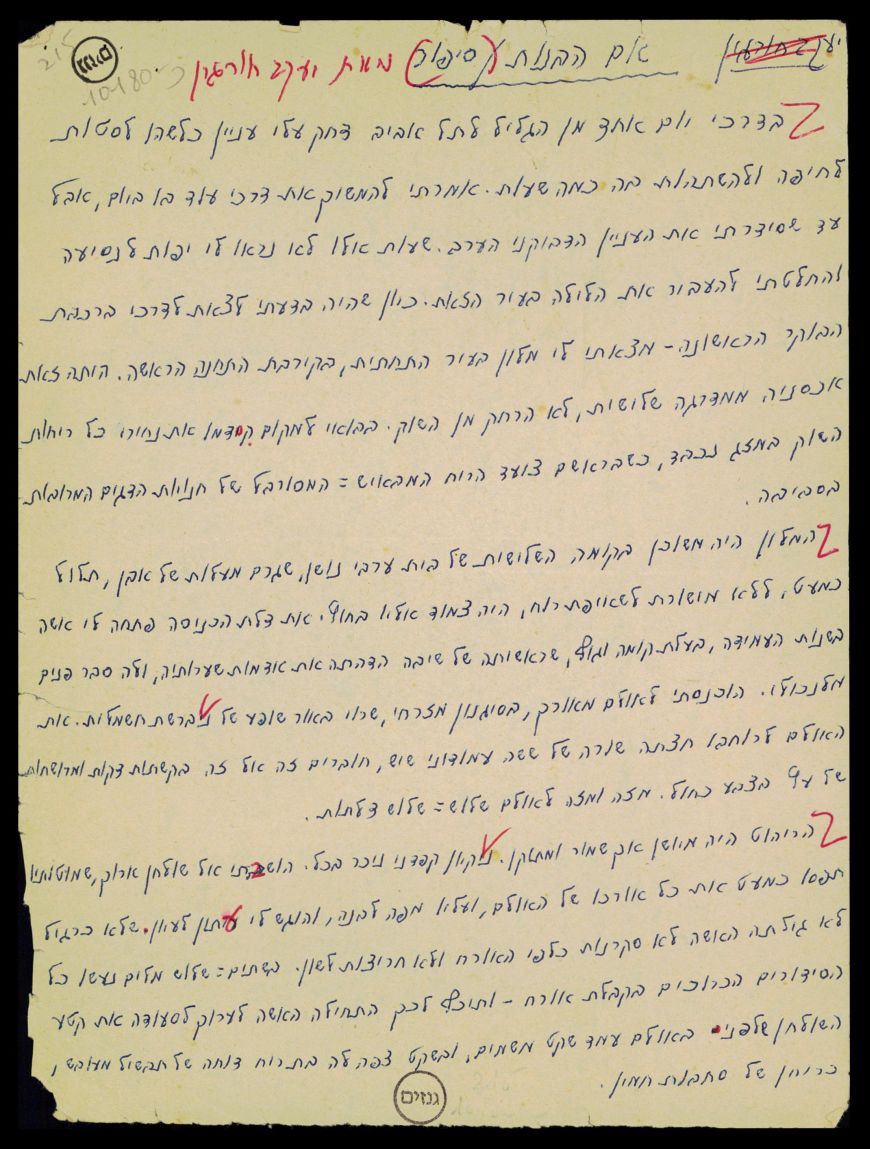 גנזים
215
10180
יעקב חורגין
אם הבנות (סיפור) מאת יעקב חורגין
בדרכי יום אחד מן הגליל לתל אביב דחק עלי עניין כלשהו לסטות
לחיפה ולהשתהות בה כמה שעות. אמרתי להמשיך את דרכי עוד בו ביום, אבל
עד שסידרתי את העניין הדביקני הערב. שעות אלו לא נראו לי יפות לנסיעה
והחלטתי להעביר את הלילה בעיר הזאת. כיון שהיה בדעתי לצאת לדרכי ברכבת
הבוקר הראשונה – מצאתי לי מלון בעיר התחתית, בקירבת התחנה הראשה. היתה זאת
אכסניה ממדרגה שלישית, לא הרחק מן השוק. בבואי למקום קידמו את נחירי כל ריחות
השוק במזג נכבד, כשבראשם צועד הריח המבאיש = המסורבל של חנויות הדגים המרובות
בסביבה.
המלון היה משוכן בקומה השלישית של בית ערבי נושן, שגרם מעלות של אבן, תלול
כמעט, ללא מישורת לשאיפת רוח, היה צמוד אליו בחוץ. את דלת הכניסה פתחה לי אשה
בשנות העמידה, בעלת קומה וגוף, שראשיתה של שיבה הדהתה את אדמות שערותיה, ולה סבר פנים
מלנכולי. הוכנסתי לאולם מאורך, בסיגנון מזרחי, שרוי באור שופע של נברשת חשמלית. את
האולם לרוחבו חצתה שורה של ששה עמודוני שיש, חוברים זה אל זה בקשתות דקות ומרושתות
של עץ בצבע כחול. מזה ומזה לאולם שלוש = שלוש דלתות.
הריהוט היה מיושן אך שמור ומתוקן. ניקיון קפדני ניכר בכל. הושבתי אל שולחן ארוך, שמוטותיו
תפסו כמעט את כל אורכו של האולם, ועליו מפה לבנה, והוגש לי עתון לעיון. שלא כרגיל
לא גילתה האשה לא סקרנות כלפי האורח ולא חריצות לשון. בשתים = שלוש מלים נעשו כל
הסידורים הכרוכים בקבלת אורח – ותיכף לכך התחילה האשה לערוך לסעודה את קטע
השולחן שלפני. באולם עמד שקט משמים, ובשקט צפה לה בת רוח דוחה של תבשיל מעובש,
כריחן של סחבות חמין.
גנזים